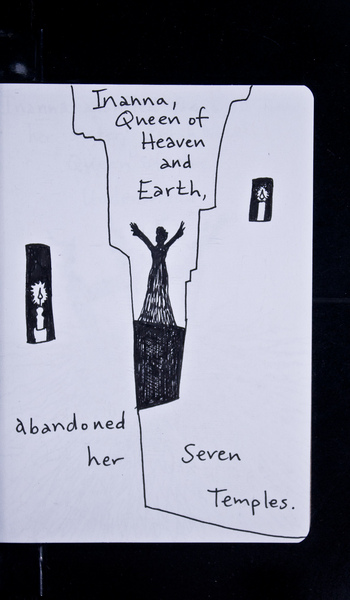 Inanna,
Queen of
Heaven
and
Earth,
abandoned
her Seven
Temples.